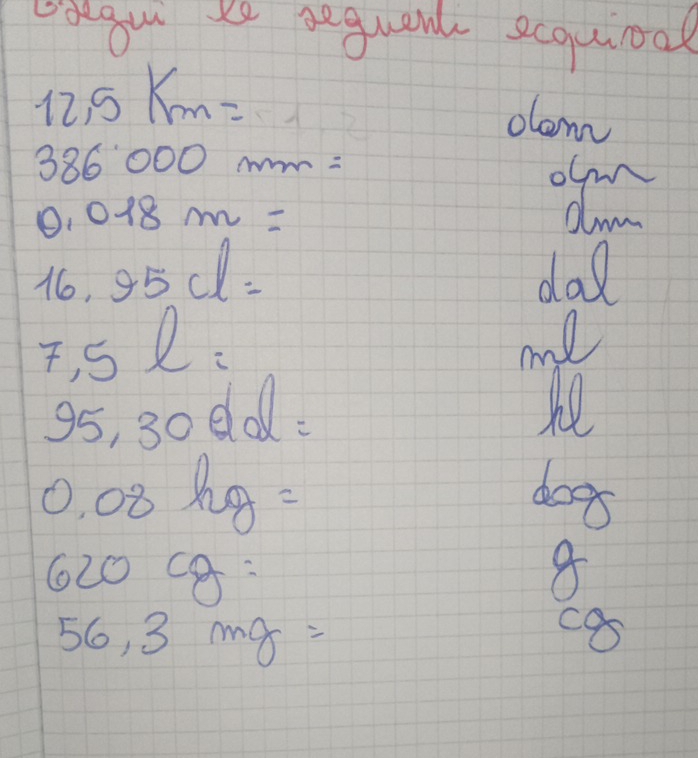 Esegui le seguenti equival
12,5 Km = dam
386 000 mm = dm
0,018 m = dm
16,95 cl = dal
7,5 l = ml
95,30 dal = hl
0,08 hg = dag
620 cg = g
56,3 mg = cg